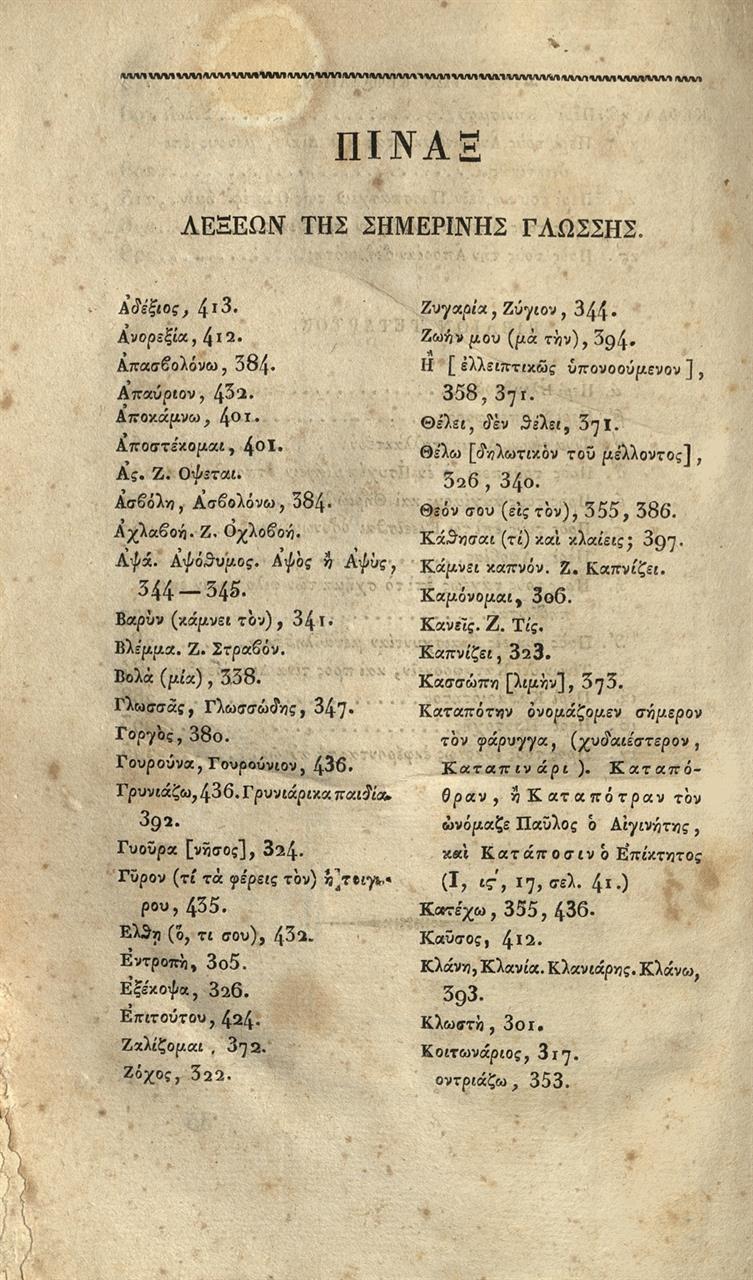 ΠΙΝΑΞ
ΛΕΞΕΩΝ ΤΗΣ ΣΗΜΕΡΙΝΗΣ ΓΛΩΣΣΗΣ.
Ἀδέξιος, 413.
Ἀνορεξία, 412.
Ἀπασβολόνω, 384.
Ἀπαύριον, 432.
Ἀποκάμνω, 401.
Ἀποστέκομαι, 401.
Ἀς. Ζ. Οψεται.
Ἀσβόλη, Ἀσβολόνω, 384.
Ἀχλαβοή. Ζ. Ὀχλοβοή.
Ἀψά. Ἀψόθυμος. Ἀψὸς ἢ Ἀψὺς,
344 — 345.
Βαρὺν (κάμνει τὸν), 341.
Βλέμμα. Ζ. Στραβόν.
Βολὰ (μία), 338.
Γλωσσᾶς, Γλωσσώδης, 347.
Γοργὸς, 380.
Γουρούνα, Γουρούνιον, 436.
Γρυνιάζω, 436. Γρυνιάρικα παιδία,
392.
Γυοῦρα [νῆσος], 324.
Γῦρον (τί τὰ φέρεις τὸν) ἢ
ρου, 435.
Ἔλθῃ (ὅ, τι σου), 432.
Ἐντροπὴ, 305.
Ἐξέκοψα, 326.
Ἐπιτούτου, 424.
Ζαλίζομαι, 372.
Ζόχος, 322.
Ζυγαρία, Ζύγιον, 344.
Ζωήν μου (μὰ τὴν), 394.
Ἢ [ἐλλειπτικῶς ὑπονοούμενον],
358, 371.
Θέλει, δὲν θέλει, 371.
Θέλω [δηλωτικὸν τοῦ μέλλοντος],
326, 340.
Θεόν σου (εἰς τὸν), 355, 386.
Κάθησαι (τί) καὶ κλαίεις; 397.
Κάμνει καπνόν. Ζ. Καπνίζει.
Καμόνομαι, 306.
Κανεῖς. Ζ. Τίς.
Καπνίζει, 323.
Κασσώπη [λιμὴν], 373.
Καταπότην ὀνομάζομεν σήμερον
τὸν φάρυγγα, (χυδαιέστερον,
Καταπινάρι). Καταπό-
θραν, ἢ Καταπότραν τὸν
ὠνόμαζε Παῦλος ὁ Αἰγινήτης,
καὶ Κατάποσιν ὁ Ἐπίκτητος
(Ι, ις΄, 17, σελ. 41.)
Κατέχω, 355, 436.
Καῦσος, 412.
Κλάνη, Κλανία. Κλανιάρης. Κλάνω,
393.
Κλωστὴ, 301.
Κοιτωνάριος, 317.
οντριάζω, 353.